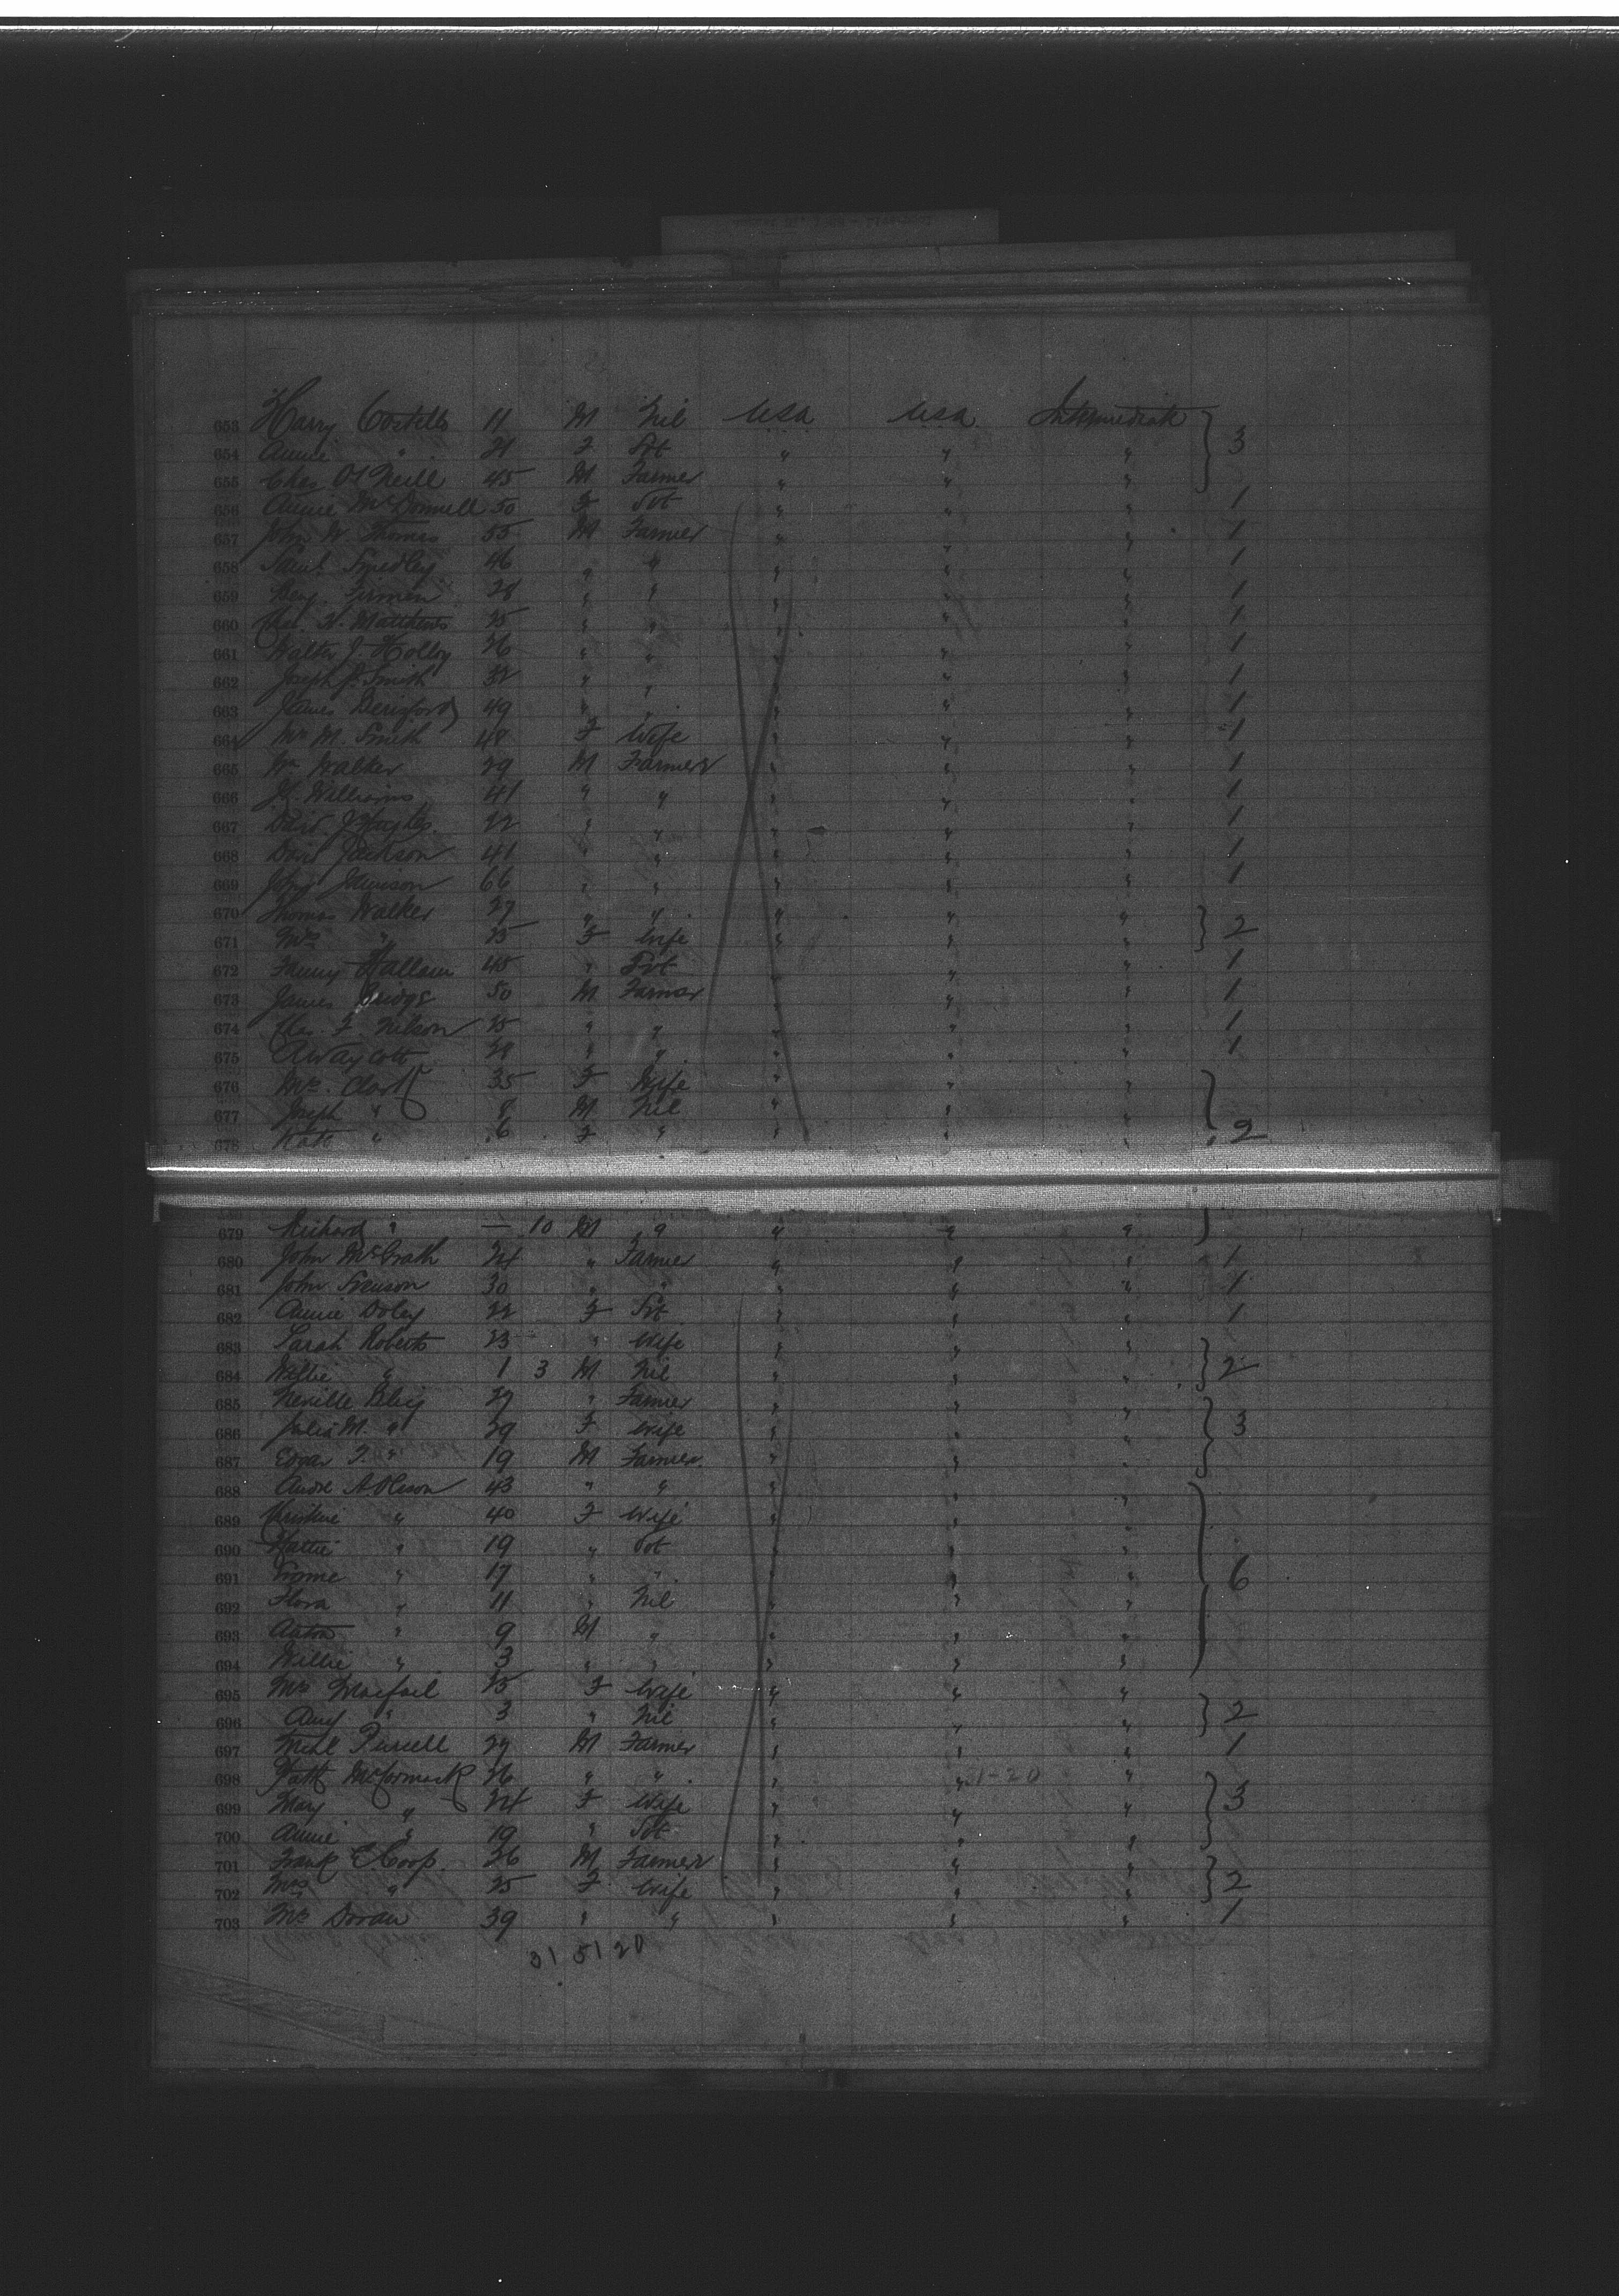 653 Harry Costello 11 M Nil USA USA Intermediate 3
654 Annie " 21 F Svt " " "
655 Chas O'Neill 45 M Farmer " " "
656 Annie McDonnell 50 F Svt " " " 1
657 John W. Thomas 55 M Farmer " " " 1
658 Saml Smedley 46 " " " " " 1
659 Benj. Firmin 28 " " " " " 1
660 Chas. H. Matthews 25 " " " " " 1
661 Walter J. Holloy 26 " " " " " 1
662 Joseph P. Smith 32 " " " " " 1
663 James Berisford 49 " " " " " 1
664 Mrs M. Smith 48 F Wife " " " 1
665 Wm Walker 29 M Farmer " " " 1
666 Williams 41 " " " " " 1
667 David J Hughes 22 " " " " " 1
668 David Jackson 41 " " " " " 1
669 John Jamison 66 " " " " " 1
670 Thomas Walker 27 " " " " " 2
671 Mrs " 25 F Wife " " "
672 Fanny Hallam 45 " Svt " " " 1
673 James 50 M Farmer " " " 1
674 F. Nilson 25 " " " " " 1
675 A Waycott 28 " " " " " 1
676 Mrs. Clark 35 F Wife " " "
677 Joseph " 8 M Nil " " "
678 Kate " 6 F " " " " 2
679 Richard " — 10 M " " " "
680 John McGrath 24 " Farmer " " " 1
681 John Svenson 30 " " " " " 1
682 Annie Doley 22 F Svt " " " 1
683 Sarah Roberts 23 " Wife " " "
684 Willie " 1 3 M Nil " " " 2
685 Neville Bligh 27 " Farmer " " "
686 Julia M. " 29 F Wife " " " 3
687 Edgar T. " 19 M Farmer " " "
688 Andr A Olson 43 " " " " "
689 Christine " 40 F Wife " " "
690 Hattie " 19 " Svt " " "
691 " 17 " " " " " 6
692 Flora " 11 " Nil " " "
693 Anton " 9 M " " " "
694 Willie " 3 " " " " "
695 Mrs Macfail 25 F Wife " " "
696 Amy " 3 " Nil " " " 2
697 Michl Purcell 27 M Farmer " " " 1
698 Patk McCormack 26 " " " " 1-20 "
699 Mary " 24 F Wife " " " 3
700 Annie " 19 " Svt " " "
701 Frank E Coop. 26 M Farmer " " "
702 Mrs " 25 F Wife " " " 2
703 Mrs Doran 39 " " " " " 1
31 5120